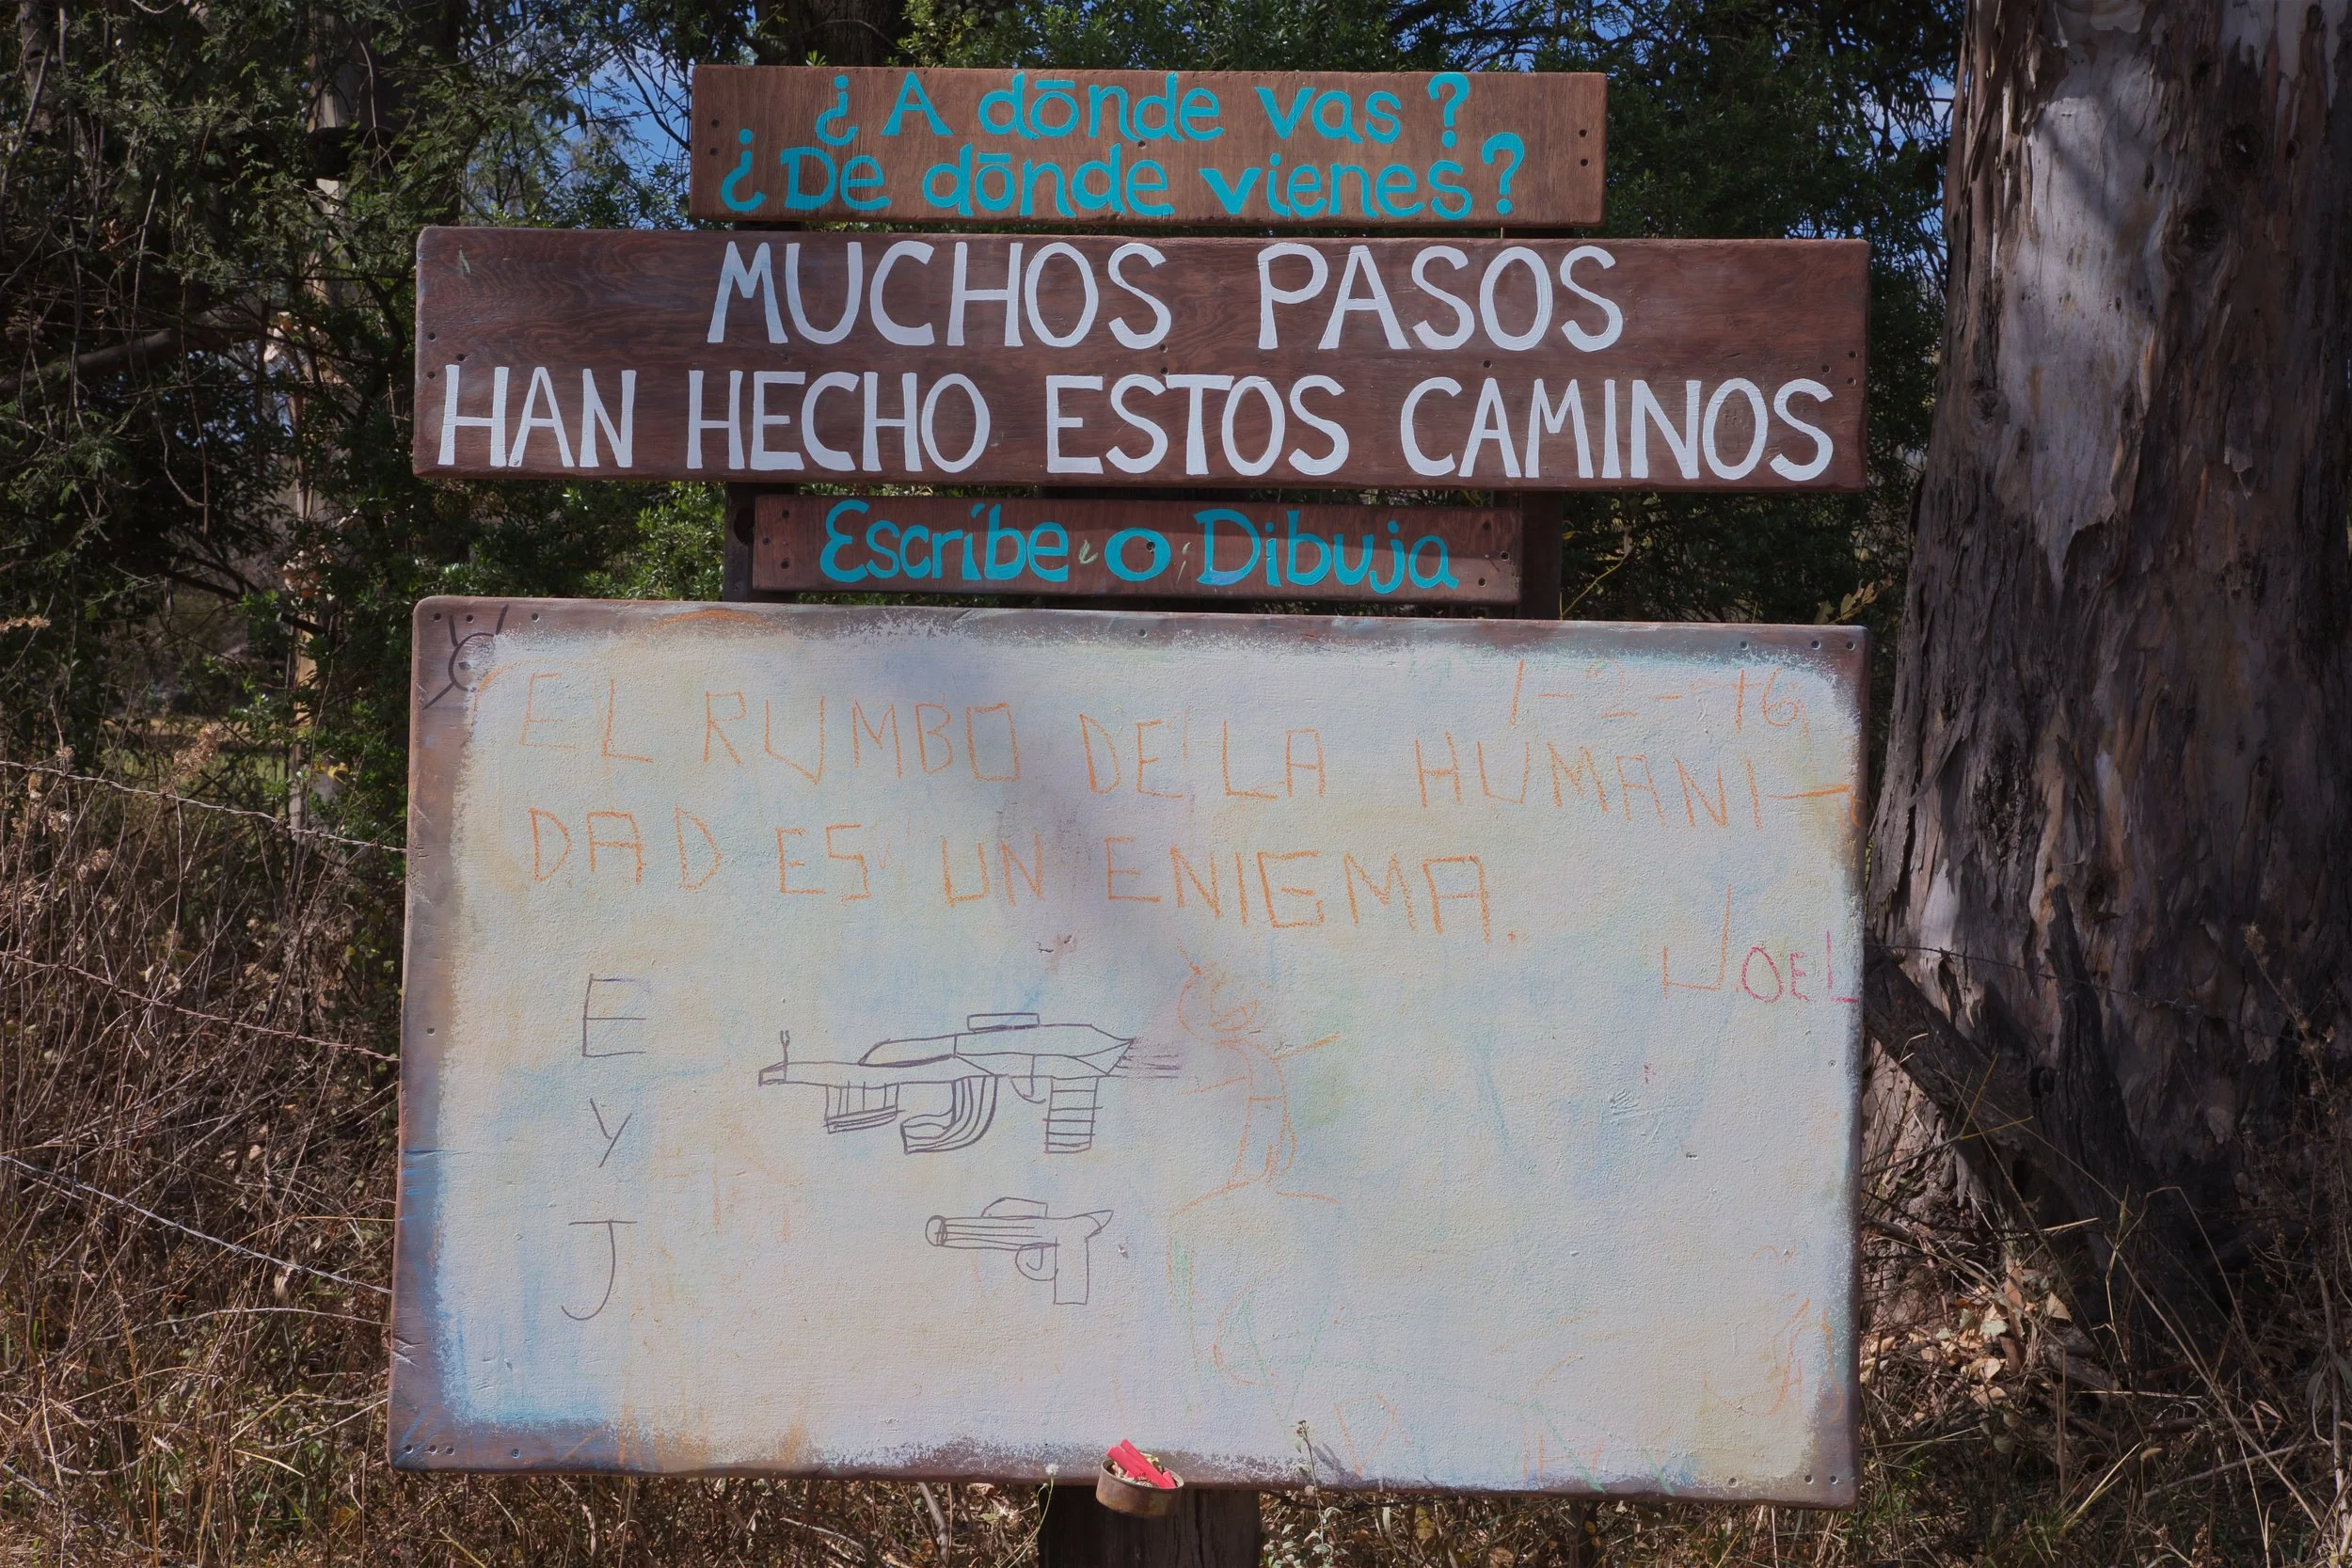 ¿A dōnde vas?
¿De dōnde vienes?
MUCHOS PASOS
HAN HECHO ESTOS CAMINOS
Escríbe o Dibuja
EL RUMBO DE LA HUMANI-
DAD ES UN ENIGMA.
JOEL
E
y
J